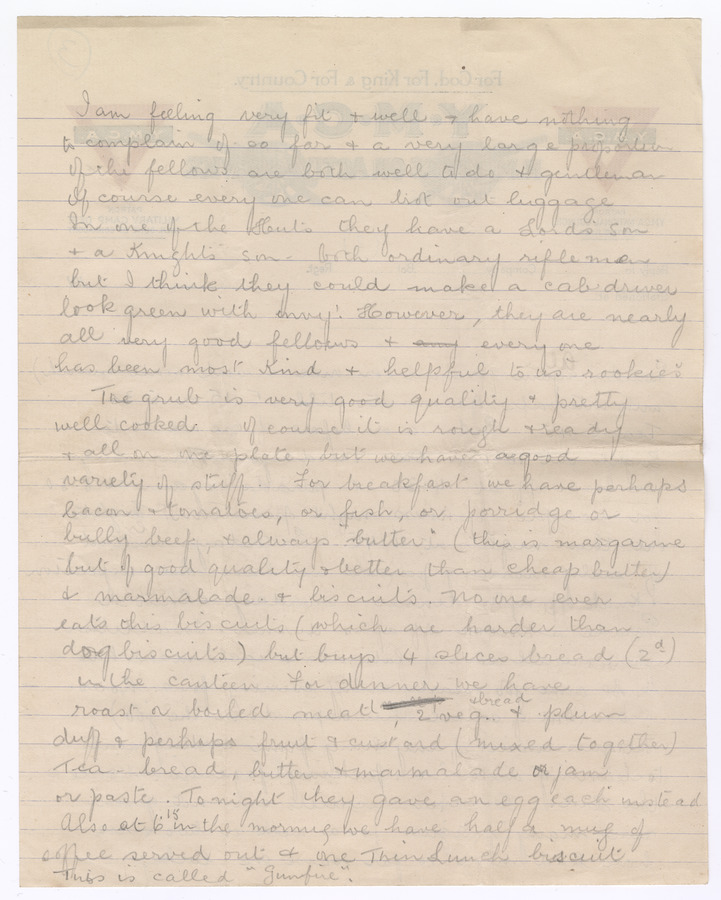 I am feeling very fit + well + have nothing
to complain of so far + a very large proportion
of the fellows are both well to do + gentleman
Of course every one can not out luggage
In one of the Huts they have a Lords Son
+ a Knights son - both ordinary riflemen
but I think they could make a cab-driver
look green with envy! However, they are nearly
all very good fellows + any every one
has been most kind + helpful to us "rookies"
The grub is very good quality + pretty
well cooked. Of course it is rough + ready
+ all on one plate, but we have a good
variety of stuff. For breakfast we have perhaps
bacon + tomatoes, or fish, or porridge or
bully beef, + always "butter" (this is margarine
but of good quality + better than cheap butter)
+ marmalade. + biscuits. No one ever
eats this biscuits (which are harder than
dog biscuits) but buys 4 slices bread (2d)
in the canteen For dinner we have
roast or boiled meat, 2 veg. + bread + plum
duff + perhaps fruit + custard (mixed together)
Tea - bread, butter + marmalade or jam
or paste. Tonight they gave an egg each instead
Also at 6.15 in the morning we have half a mug of
coffee served out + one Thin Lunch biscuit
This is called "Gunfire".